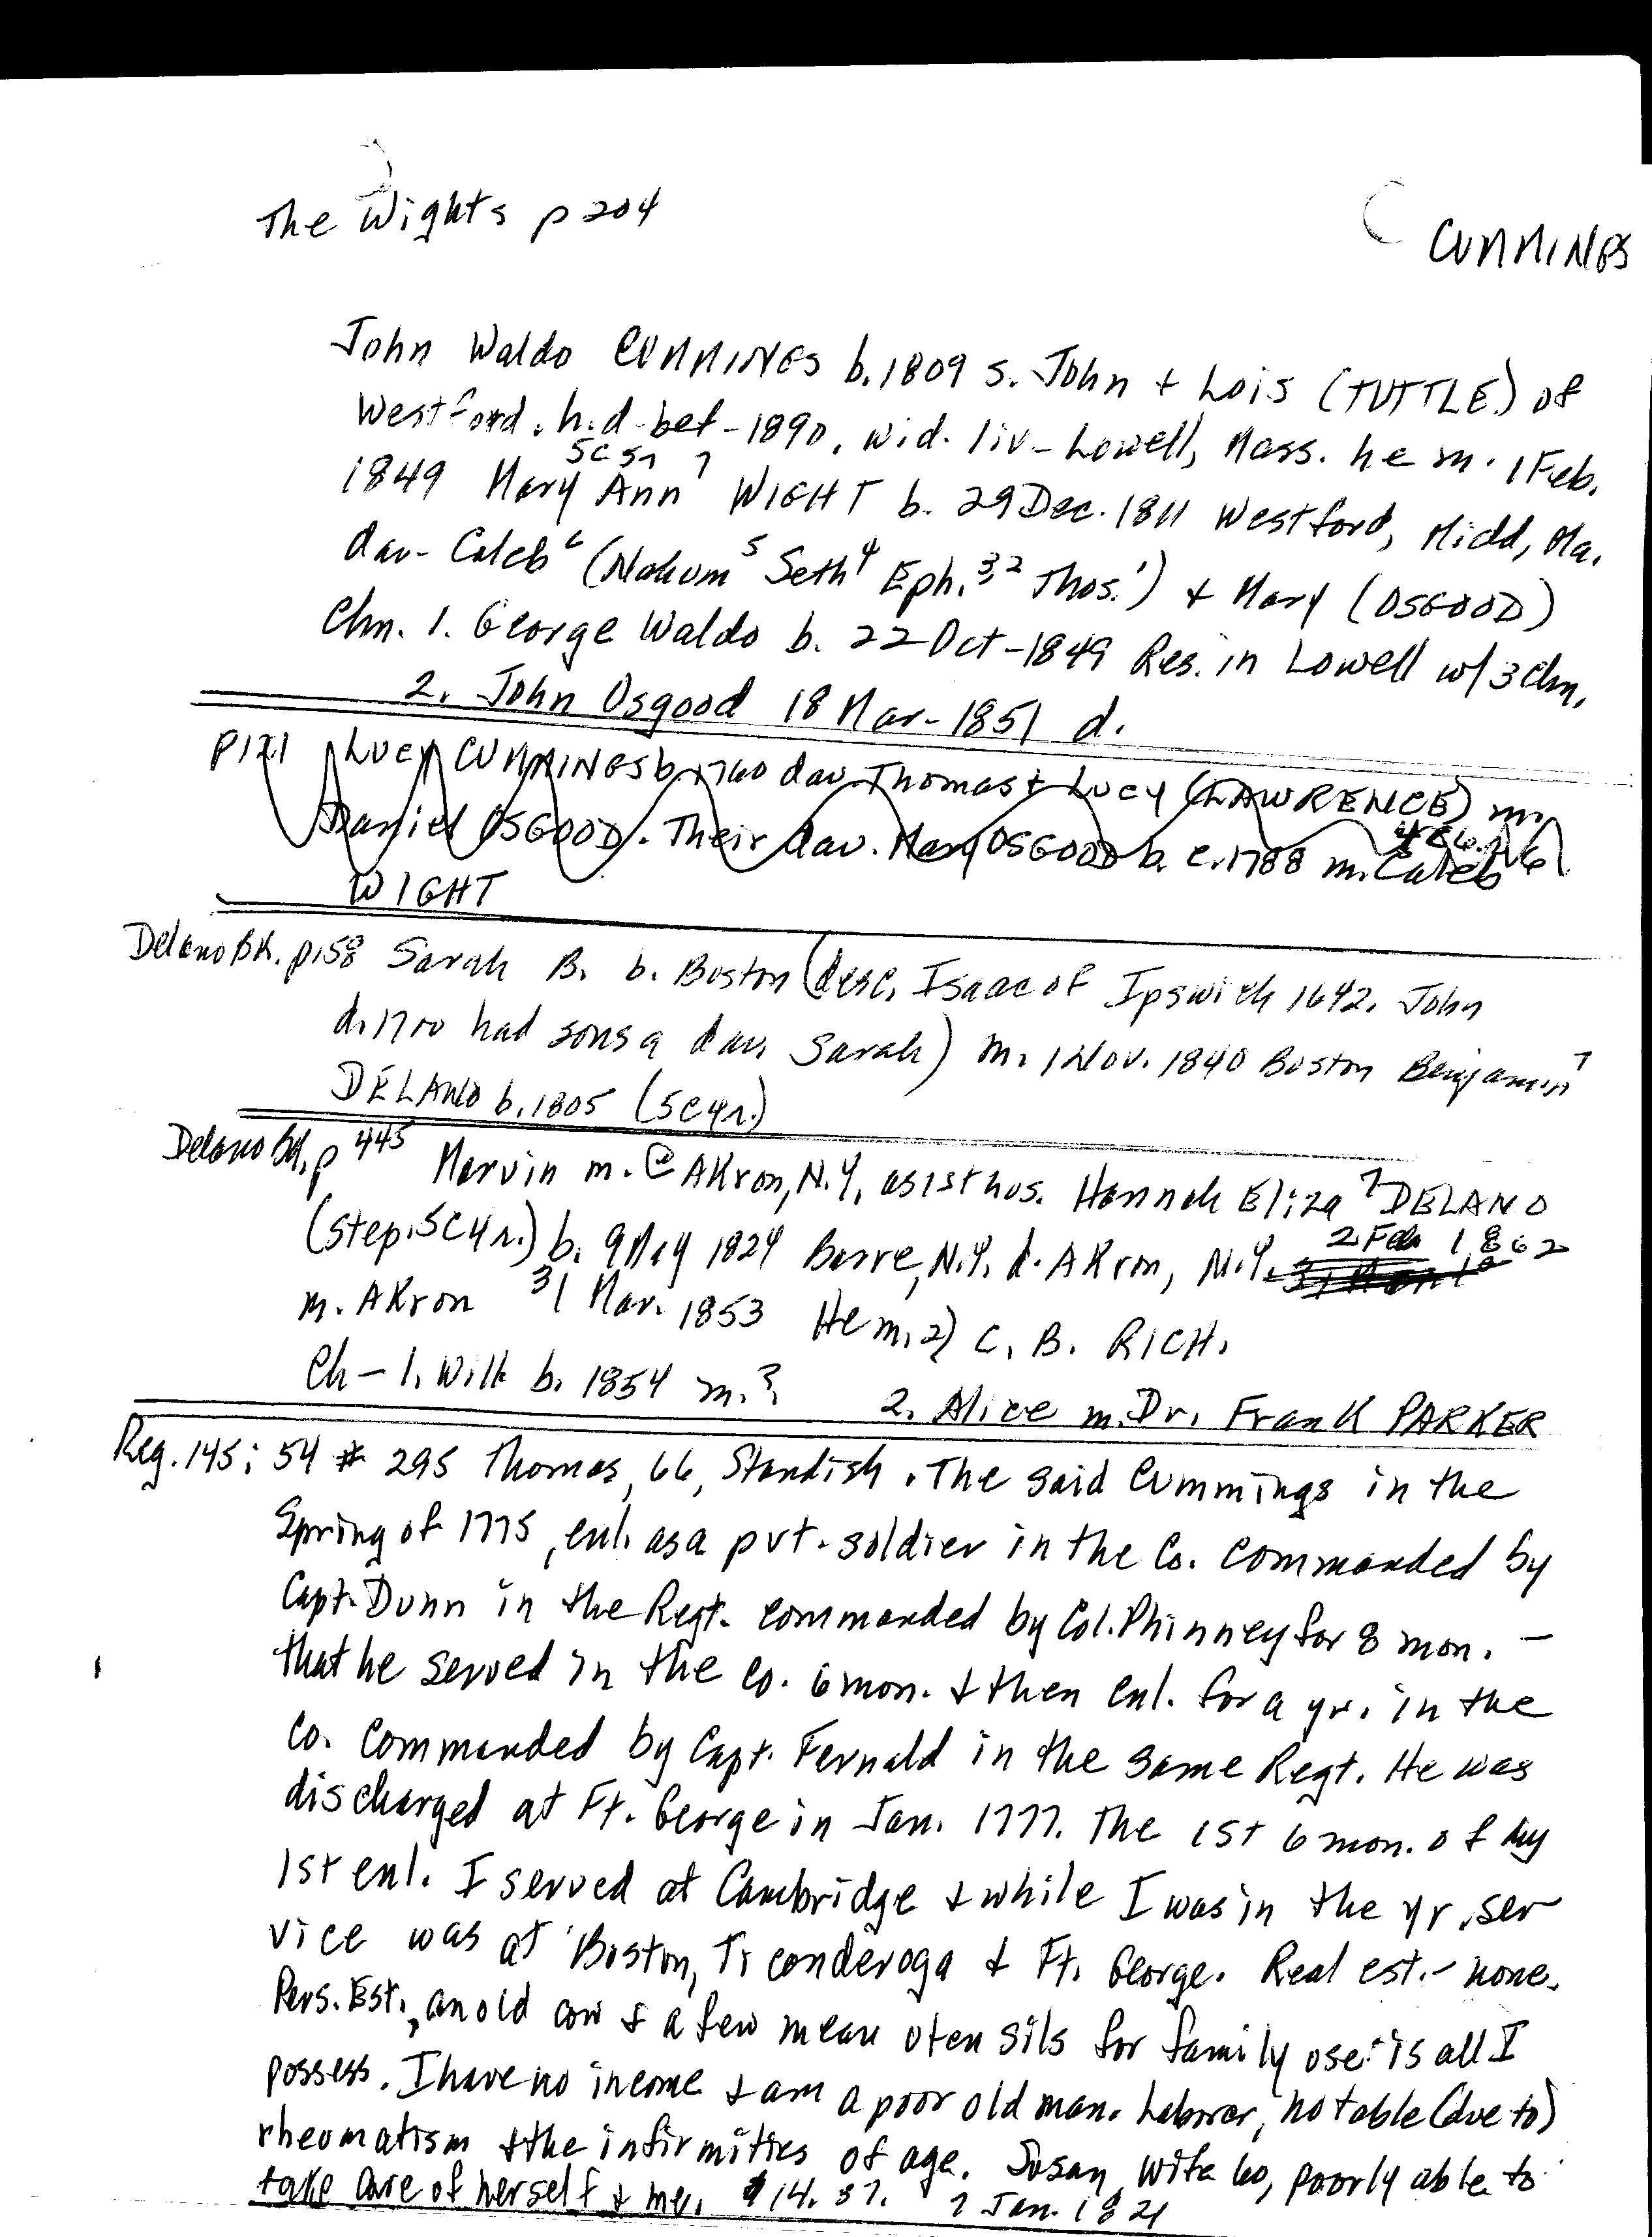 The Wights p 204
CUMMINGS
John Waldo CUMMINGS b. 1809 s. John + Lois (TUTTLE) of
Westford. h. d. bef - 1890. wid. liv - Lowell, Mass. he m. 1 Feb.
5C5r
1849 Mary Ann 7 WIGHT b. 29 Dec. 1811 Westford, Midd, Ma.
dau - Caleb 6 (Nahum 5 Seth 4 Eph. 3,2 Thos. 1) + Mary (OSGOOD)
Chn. 1. George Waldo b. 22 Oct - 1849 Res. in Lowell w/ 3 chn.
2. John Osgood 18 Mar - 1851 d.
p 121 Lucy CUMMINGS b. 1760 dau. Thomas + Lucy (LAWRENCE) m.
Daniel OSGOOD. Their dau. Mary OSGOOD b. c. 1788 m. Caleb 6
WIGHT
Delano Bk. p. 158 Sarah B. b. Boston (desc. Isaac of Ipswich 1642. John
d. 1700 had sons a dau. Sarah) m. 1 Nov. 1840 Boston Benjamin 7
DELANO b. 1805 (5C4r.)
Delano Bk. p 445 Marvin m. @ Akron, N.Y. as 1st hus. Hannah Eliza 7 DELANO
(step. 5C4r.) b. 9 May 1824 Barre, N.Y. d. Akron, N.Y. 2 Feb 1862
m. Akron 31 Mar. 1853 He m. 2) C. B. RICH.
Ch - 1. Will b. 1854 m. ? 2. Alice m. Dr. Frank PARKER
Reg. 145: 54 # 295 Thomas, 66, Standish. The said Cummings in the
Spring of 1775, enl. as a pvt. soldier in the Co. commanded by
Capt. Dunn in the Regt. commanded by Col. Phinney for 8 mon. -
that he served in the Co. 6 mon. + then enl. for a yr. in the
Co. commanded by Capt. Fernald in the same Regt. He was
discharged at Ft. George in Jan. 1777. The 1st 6 mon. of my
1st enl. I served at Cambridge + while I was in the yr. ser
vice was at Boston, Ticonderoga + Ft. George. Real est. - none.
Pers. Est., an old cow + a few mean utensils for family use is all I
possess. I have no income + am a poor old man. Laborer, not able (due to)
rheumatism + the infirmities of age. Susan, wife 60, poorly able to
take care of herself + me. $14.37. 7 Jan. 1821